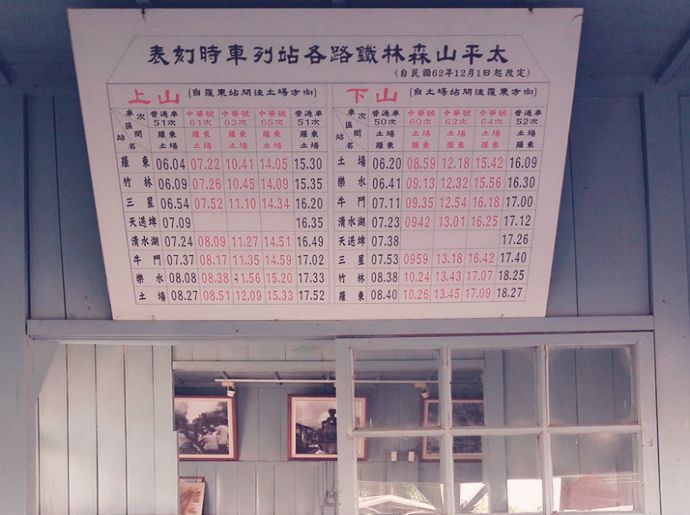 太平山森林鐵路各站列車時刻表
(自民國62年12月1日起改定)
上山 (自羅東站開往土場方向)
車次 普通車51次 中華號61次 中華號63次 中華號65次 普通車51次
區間 羅東土場 羅東土場 羅東土場 羅東土場 羅東土場
站名
羅東 06.04 07.22 10.41 14.05 15.30
竹林 06.09 07.26 10.45 14.09 15.35
三星 06.54 07.52 11.10 14.34 16.20
天送埤 07.09 16.35
清水湖 07.24 08.09 11.27 14.51 16.49
牛門 07.37 08.17 11.35 14.59 17.02
樂水 08.08 08.38 11.56 15.20 17.33
土場 08.27 08.51 12.09 15.33 17.52
下山 (自土場站開往羅東方向)
車次 普通車50次 中華號60次 中華號62次 中華號64次 普通車52次
區間 土場羅東 土場羅東 土場羅東 土場羅東 土場羅東
站名
土場 06.20 08.59 12.18 15.42 16.09
樂水 06.41 09.13 12.32 15.56 16.30
牛門 07.11 09.35 12.54 16.18 17.00
清水湖 07.23 0942 13.01 16.25 17.12
天送埤 07.38 17.26
三星 07.53 0959 13.18 16.42 17.40
竹林 08.38 10.24 13.43 17.07 18.25
羅東 08.40 10.26 13.45 17.09 18.27